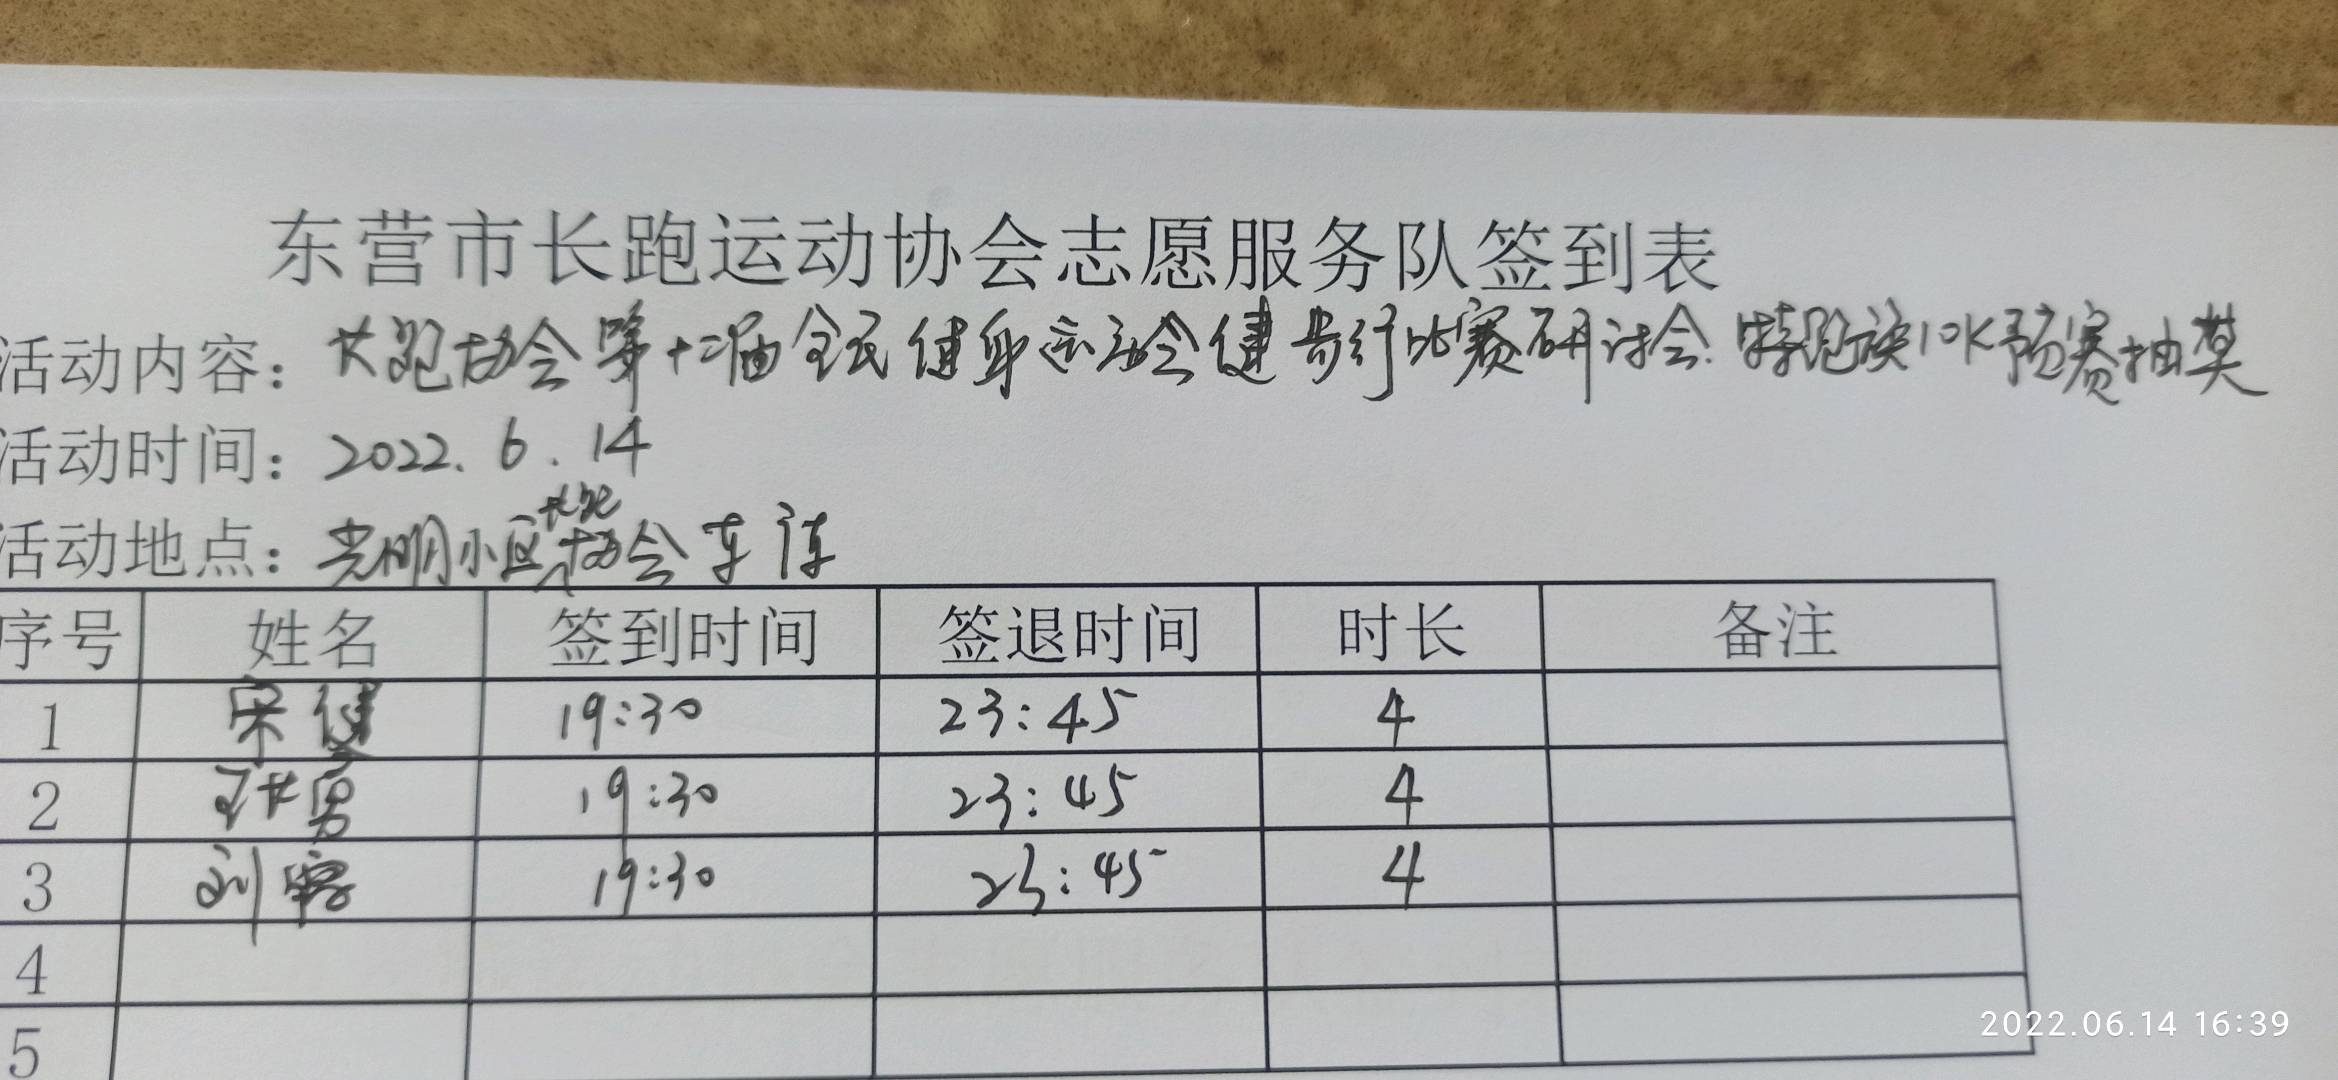 东营市长跑运动协会志愿服务队签到表
活动内容：长跑协会第十二届全民健身运动会健步行比赛研讨会.特跑族10K预赛抽奖
活动时间：2022.6.14
活动地点：光明小区长跑协会车库
序号 姓名 签到时间 签退时间 时长 备注
1 宋健 19:30 23:45 4
2 张勇 19:30 23:45 4
3 刘 19:30 23:45 4
4
5
2022.06.14 16:39